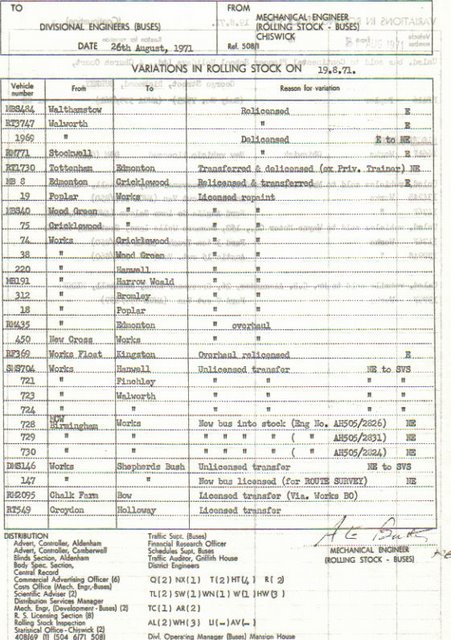 TO
DIVISIONAL ENGINEERS (BUSES)
DATE 26th August, 1971
FROM
MECHANICAL ENGINEER
(ROLLING STOCK - BUSES)
CHISWICK
Ref. 508/1
VARIATIONS IN ROLLING STOCK ON 19.8.71.
Vehicle number From To Reason for variation
MBS484 Walthamstow Relicensed E
RT3747 Walworth " E
1969 " Delicensed E to NE
RM771 Stockwell " "
RT1730 Tottenham Edmonton Transferred & delicensed (ex Priv. Trainer) NE
MB 8 Edmonton Cricklewood Relicensed & transferred E
19 Poplar Works Licensed repaint
MBS40 Wood Green " "
75 Cricklewood " "
74 Works Cricklewood " "
38 " Wood Green " "
220 " Hanwell " "
MB191 " Harrow Weald " "
312 " Bromley " "
18 " Poplar " "
RM435 " Edmonton " overhaul
450 New Cross Works " "
RF369 Works Float Kingston Overhaul relicensed E
SMS704 Works Hanwell Unlicensed transfer NE to SVS
721 " Finchley " " " "
723 " Walworth " " " "
724 " " " " " "
728 MCW Birmingham Works New bus into stock (Eng No. AH505/2826) NE
729 " " " " " " ( " AH505/2831) NE
730 " " " " " " ( " AH505/2824) NE
DMS146 Works Shepherds Bush Unlicensed transfer NE to SVS
147 " " New bus licensed (for ROUTE SURVEY) NE
RM2095 Chalk Farm Bow Licensed transfer (Via. Works BO)
RT549 Croydon Holloway Licensed transfer
MECHANICAL ENGINEER
(ROLLING STOCK - BUSES)
DISTRIBUTION
Advert. Controller, Aldenham
Advert. Controller, Camberwell
Blinds Section, Aldenham
Body Spec. Section,
Central Record
Commercial Advertising Officer (6)
Costs Office (Mech. Engr.-Buses)
Scientific Adviser (2)
Distribution Services Manager
Mech. Engr. (Development - Buses) (2)
R. S. Licensing Section (8)
Rolling Stock Inspection
Statistical Office - Chiswick (2)
408/69 (1) (504 6/71 508)
Traffic Supt. (Buses)
Financial Research Officer
Schedules Supt. Buses
Traffic Auditor, Griffith House
District Engineers
Q(2) NX(1) T(2) HT(4) R(2)
TL(2) SW(1) WN(1) W(1) HW(3)
TC(1) AR(2)
AL(2) WH(3) U(-) AV(-)
Divl. Operating Manager (Buses) Mansion House